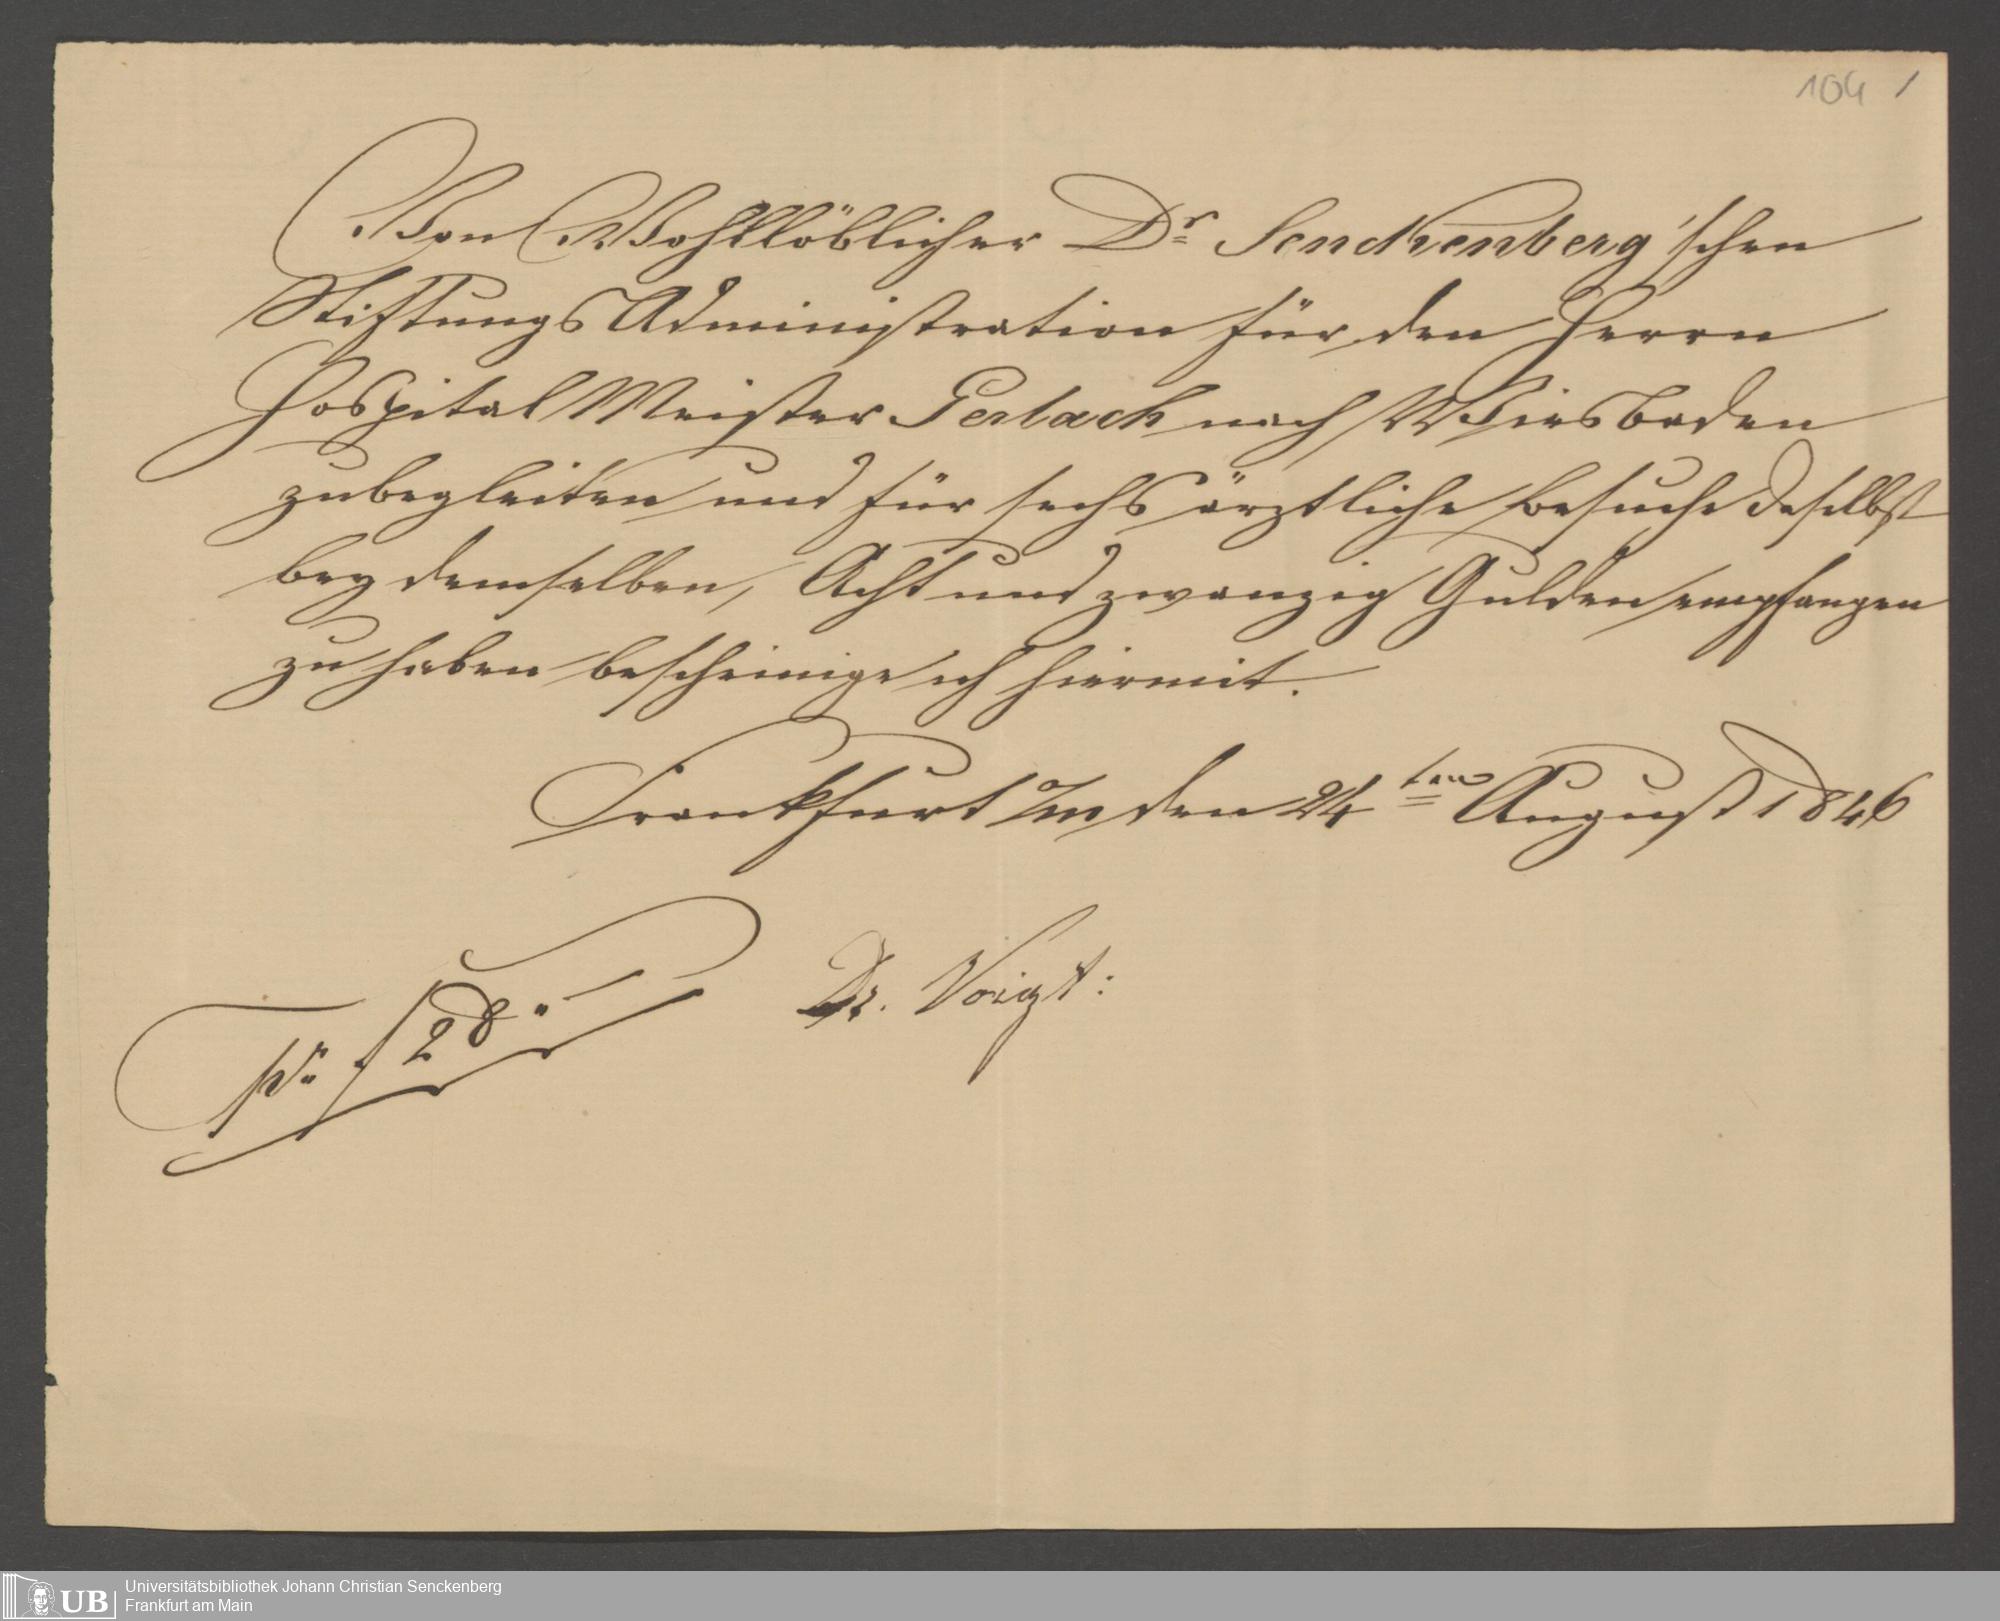 104 /
Von Wohllöblicher Dr Senckenberg'schen
Stiftungs Administration für den Herrn
Hospital Meister Gerlach nach Wiesbaden
zubegleiten und für sechs ärztliche Besuche daselbst
bey demselben, Acht und zwanzig Gulden empfangen
zu haben bescheinige ich hiermit.
Frankfurt a/m den 24ten August 1846
Dr. Voigt:
pr f 28 " –
UB Universitätsbibliothek Johann Christian Senckenberg
Frankfurt am Main